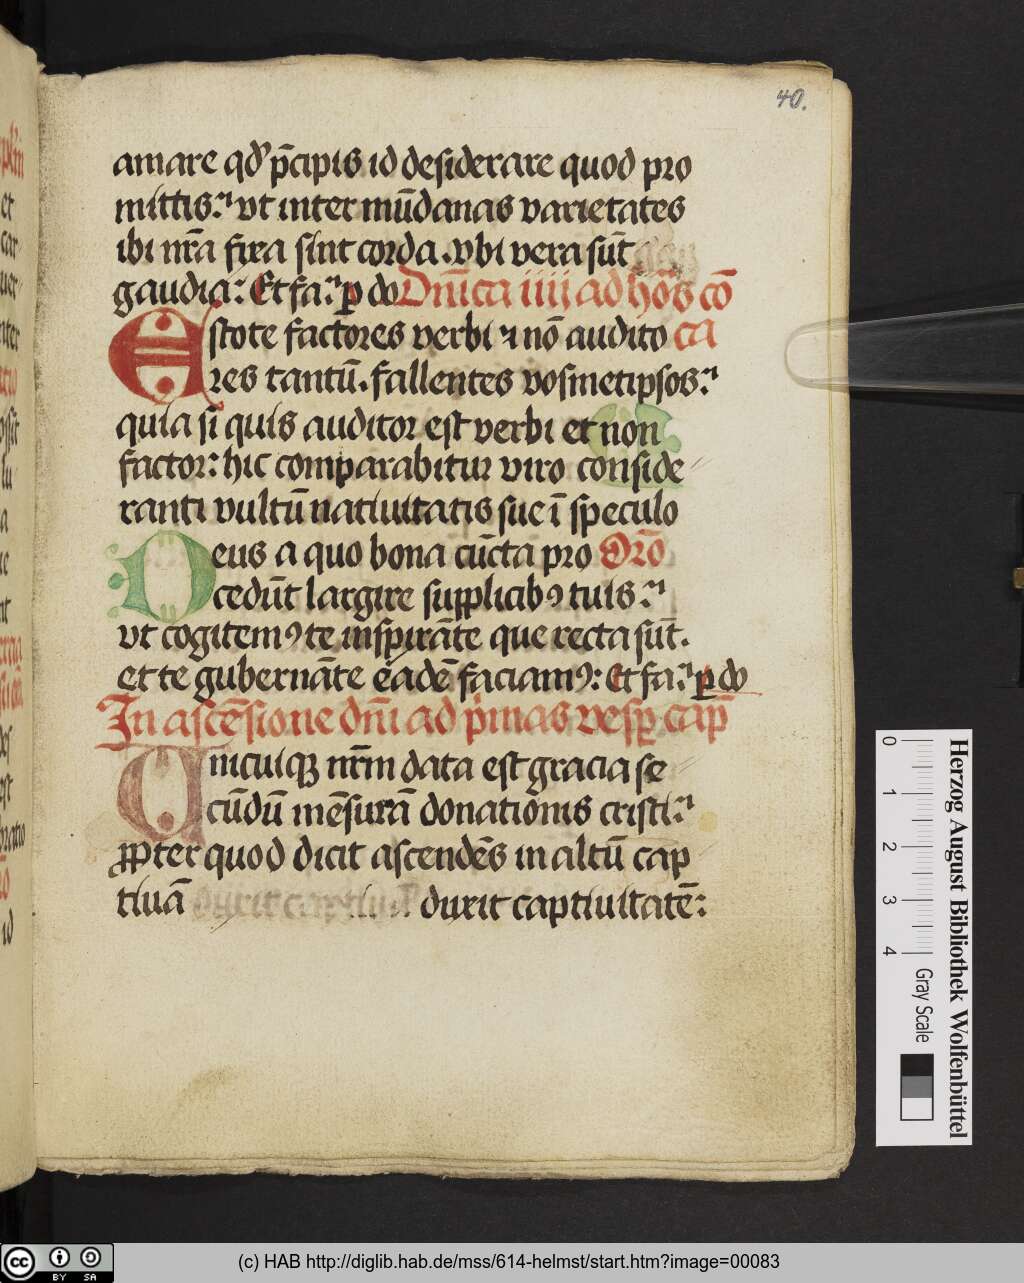 40.
amare qd' p̄cipis id desiderare quod pro
mittis: vt inter mūdanas varietates
ibi nr̄a fixa sint corda . vbi vera sūt
gaudia: Et fa: p do Dn̄ica iiii ad ho᷒s cō
Estote factores verbi ⁊ nō audito ca
res tantū . fallentes vosmetipsos:
quia si quis auditor est verbi et non
factor: hic comparabitur viro conside
ranti vultū natiuitatis sue ī speculo
Deus a quo bona cūcta pro Orō
cedūt largire supplicibꝰ tuis:
vt cogitemꝰ te inspirāte que recta sūt.
et te gubernāte eadē faciamꝰ: Et fa: ꝑ do
In ascēsione dn̄i ad p̄mas vesꝑ cap̄
Unicuiqꝫ nr̄m data est gracia se
cūdū mēsurā donationis cristi:
ꝓpter quod dicit ascendēs in altū cap
tiuā duxit captiuitatē:
Herzog August Bibliothek Wolfenbüttel
0 1 2 3 4
Gray Scale
cc BY SA
(c) HAB http://diglib.hab.de/mss/614-helmst/start.htm?image=00083